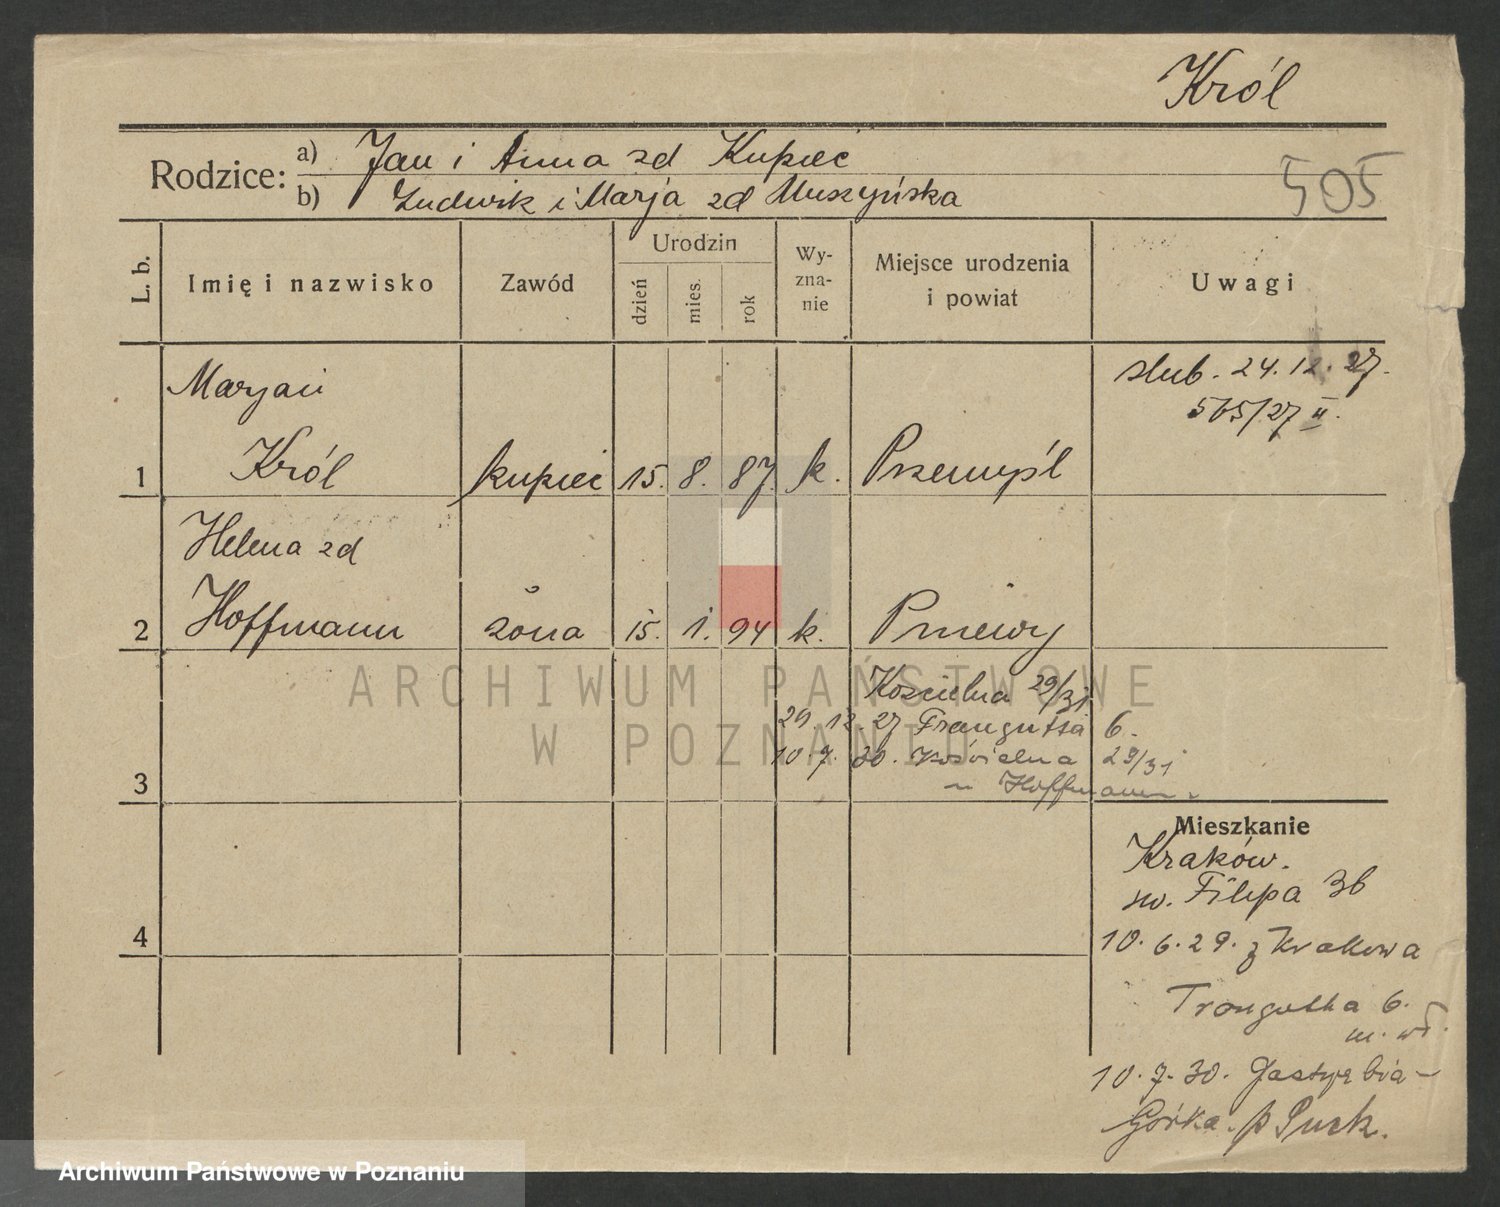 Król
Rodzice:
a) Jan i Anna zd Kupiec
b) Ludwik i Marja zd Muszyńska
505
L. b.
Imię i nazwisko
Zawód
Urodzin
dzień
mies.
rok
Wy-
zna-
nie
Miejsce urodzenia
i powiat
Uwagi
Maryan
ślub. 24. 12. 27.
565/27 II.
1 Król kupiec 15. 8. 87. k. Przemyśl
Helena zd
2 Hoffmann żona 15. 1. 94 k. Pniewy
Kościelna 29/31
29. 12. 27 Trauguta 6.
10. 7. 30. Kościelna 29/31
u Hoffmann.
3
Mieszkanie
Kraków.
św. Filipa 36
4
10. 6. 29. z Krakowa
Trauguta 6.
m. wł.
10. 7. 30. Jastrzębia-
Górka. p Puck.
ARCHIWUM PAŃSTWOWE
W POZNANIU
Archiwum Państwowe w Poznaniu